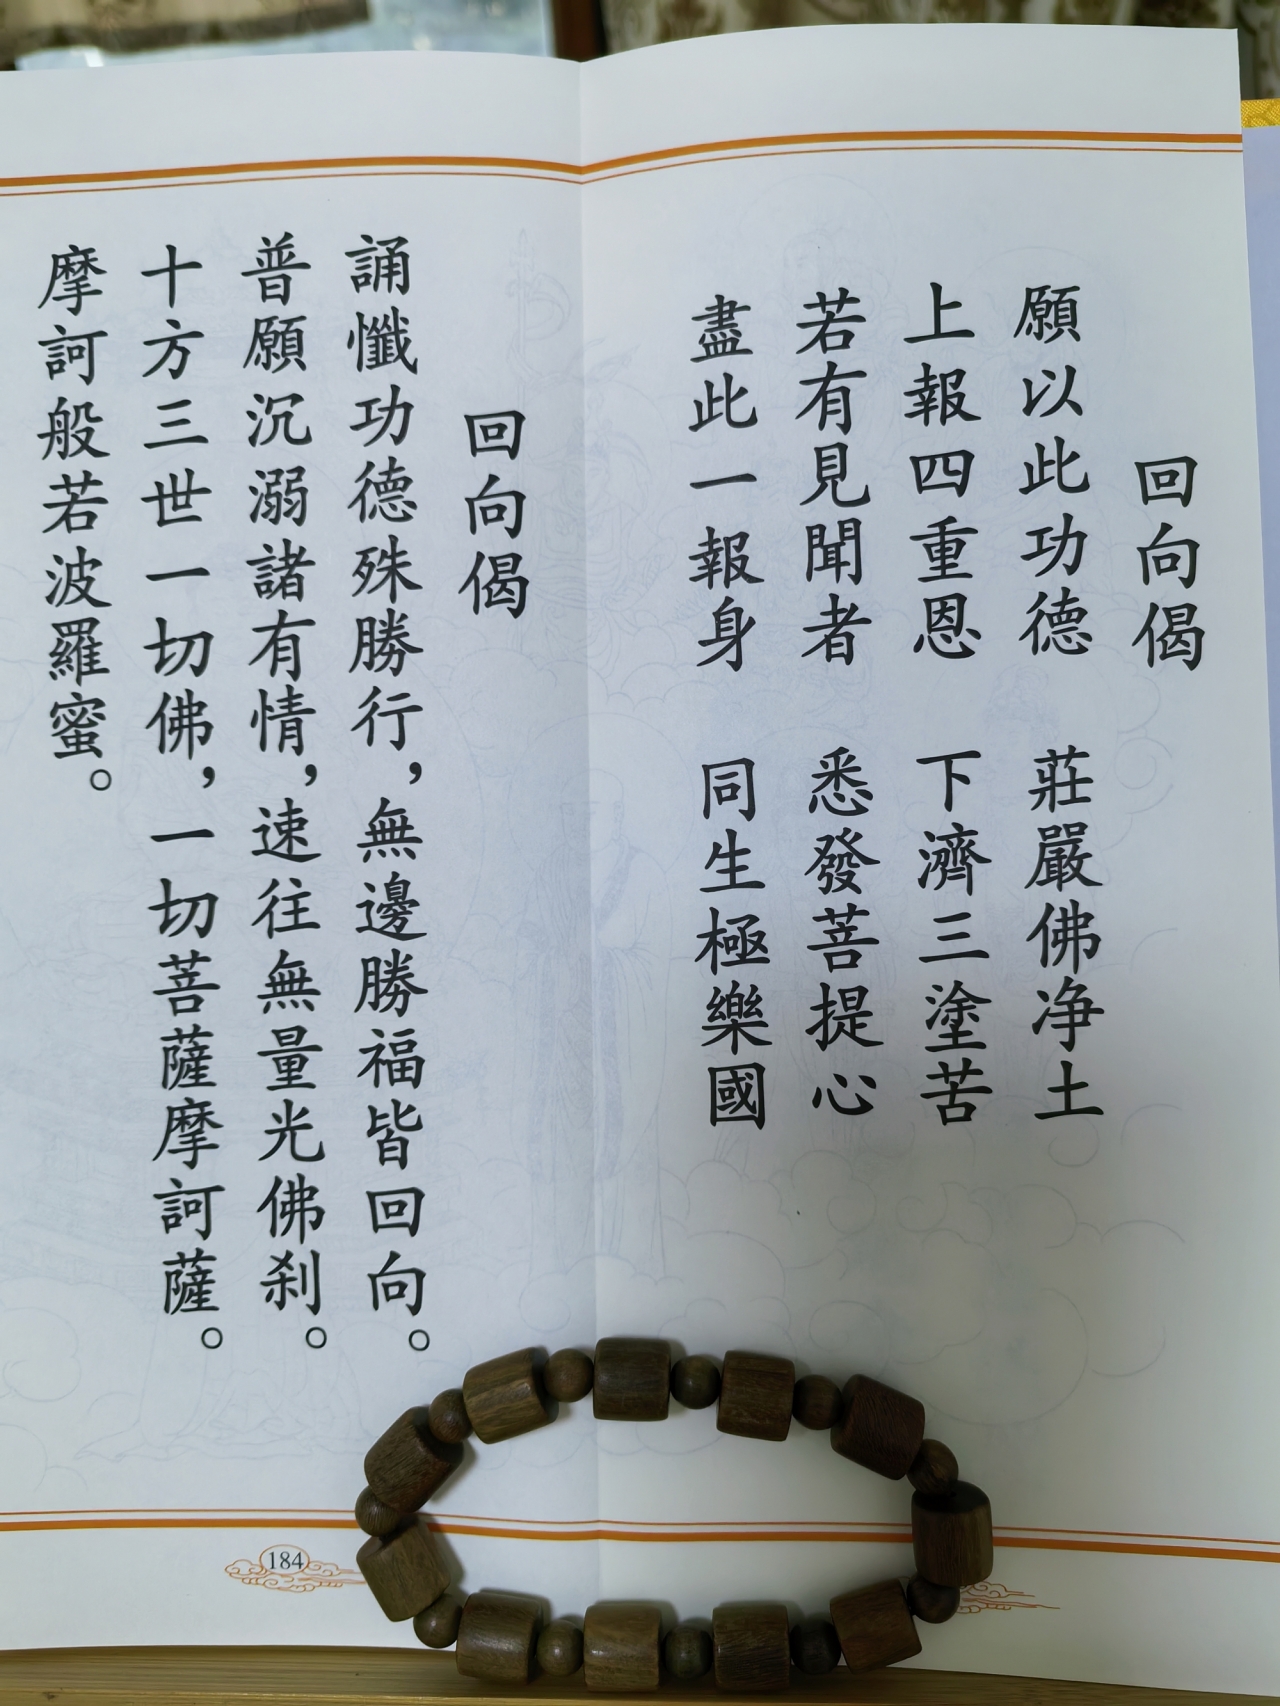 回向偈
願以此功德 莊嚴佛净土
上報四重恩 下濟三塗苦
若有見聞者 悉發菩提心
盡此一報身 同生極樂國
回向偈
誦懺功德殊勝行，無邊勝福皆回向。
普願沉溺諸有情，速往無量光佛刹。
十方三世一切佛，一切菩薩摩訶薩。
摩訶般若波羅蜜。
184